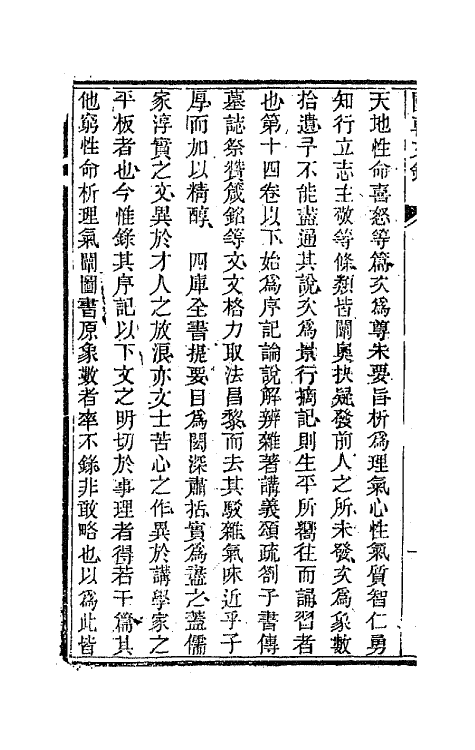 天地性命喜怒等篇次爲尊朱要旨析爲理氣心性氣質智仁勇
知行立志主敬等條類皆闡奥抉疑發前人之所未發次爲象數
拾遺予不能盡通其說次爲景行摘記則生平所嚮往而誦習者
也第十四卷以下始爲序記論說解辨雜著講義頌疏劄子書傳
墓誌祭贊箴銘等文文格力取法昌黎而去其駁雜氣味近乎子
厚而加以精醇　四庫全書提要目爲閎深肅括實爲盡之蓋儒
家淳實之文異於才人之放浪亦文士苦心之作異於講學家之
平板者也今惟錄其序記以下文之明切於事理者得若干篇其
他窮性命析理氣闡圖書原象數者率不錄非敢略也以爲此皆